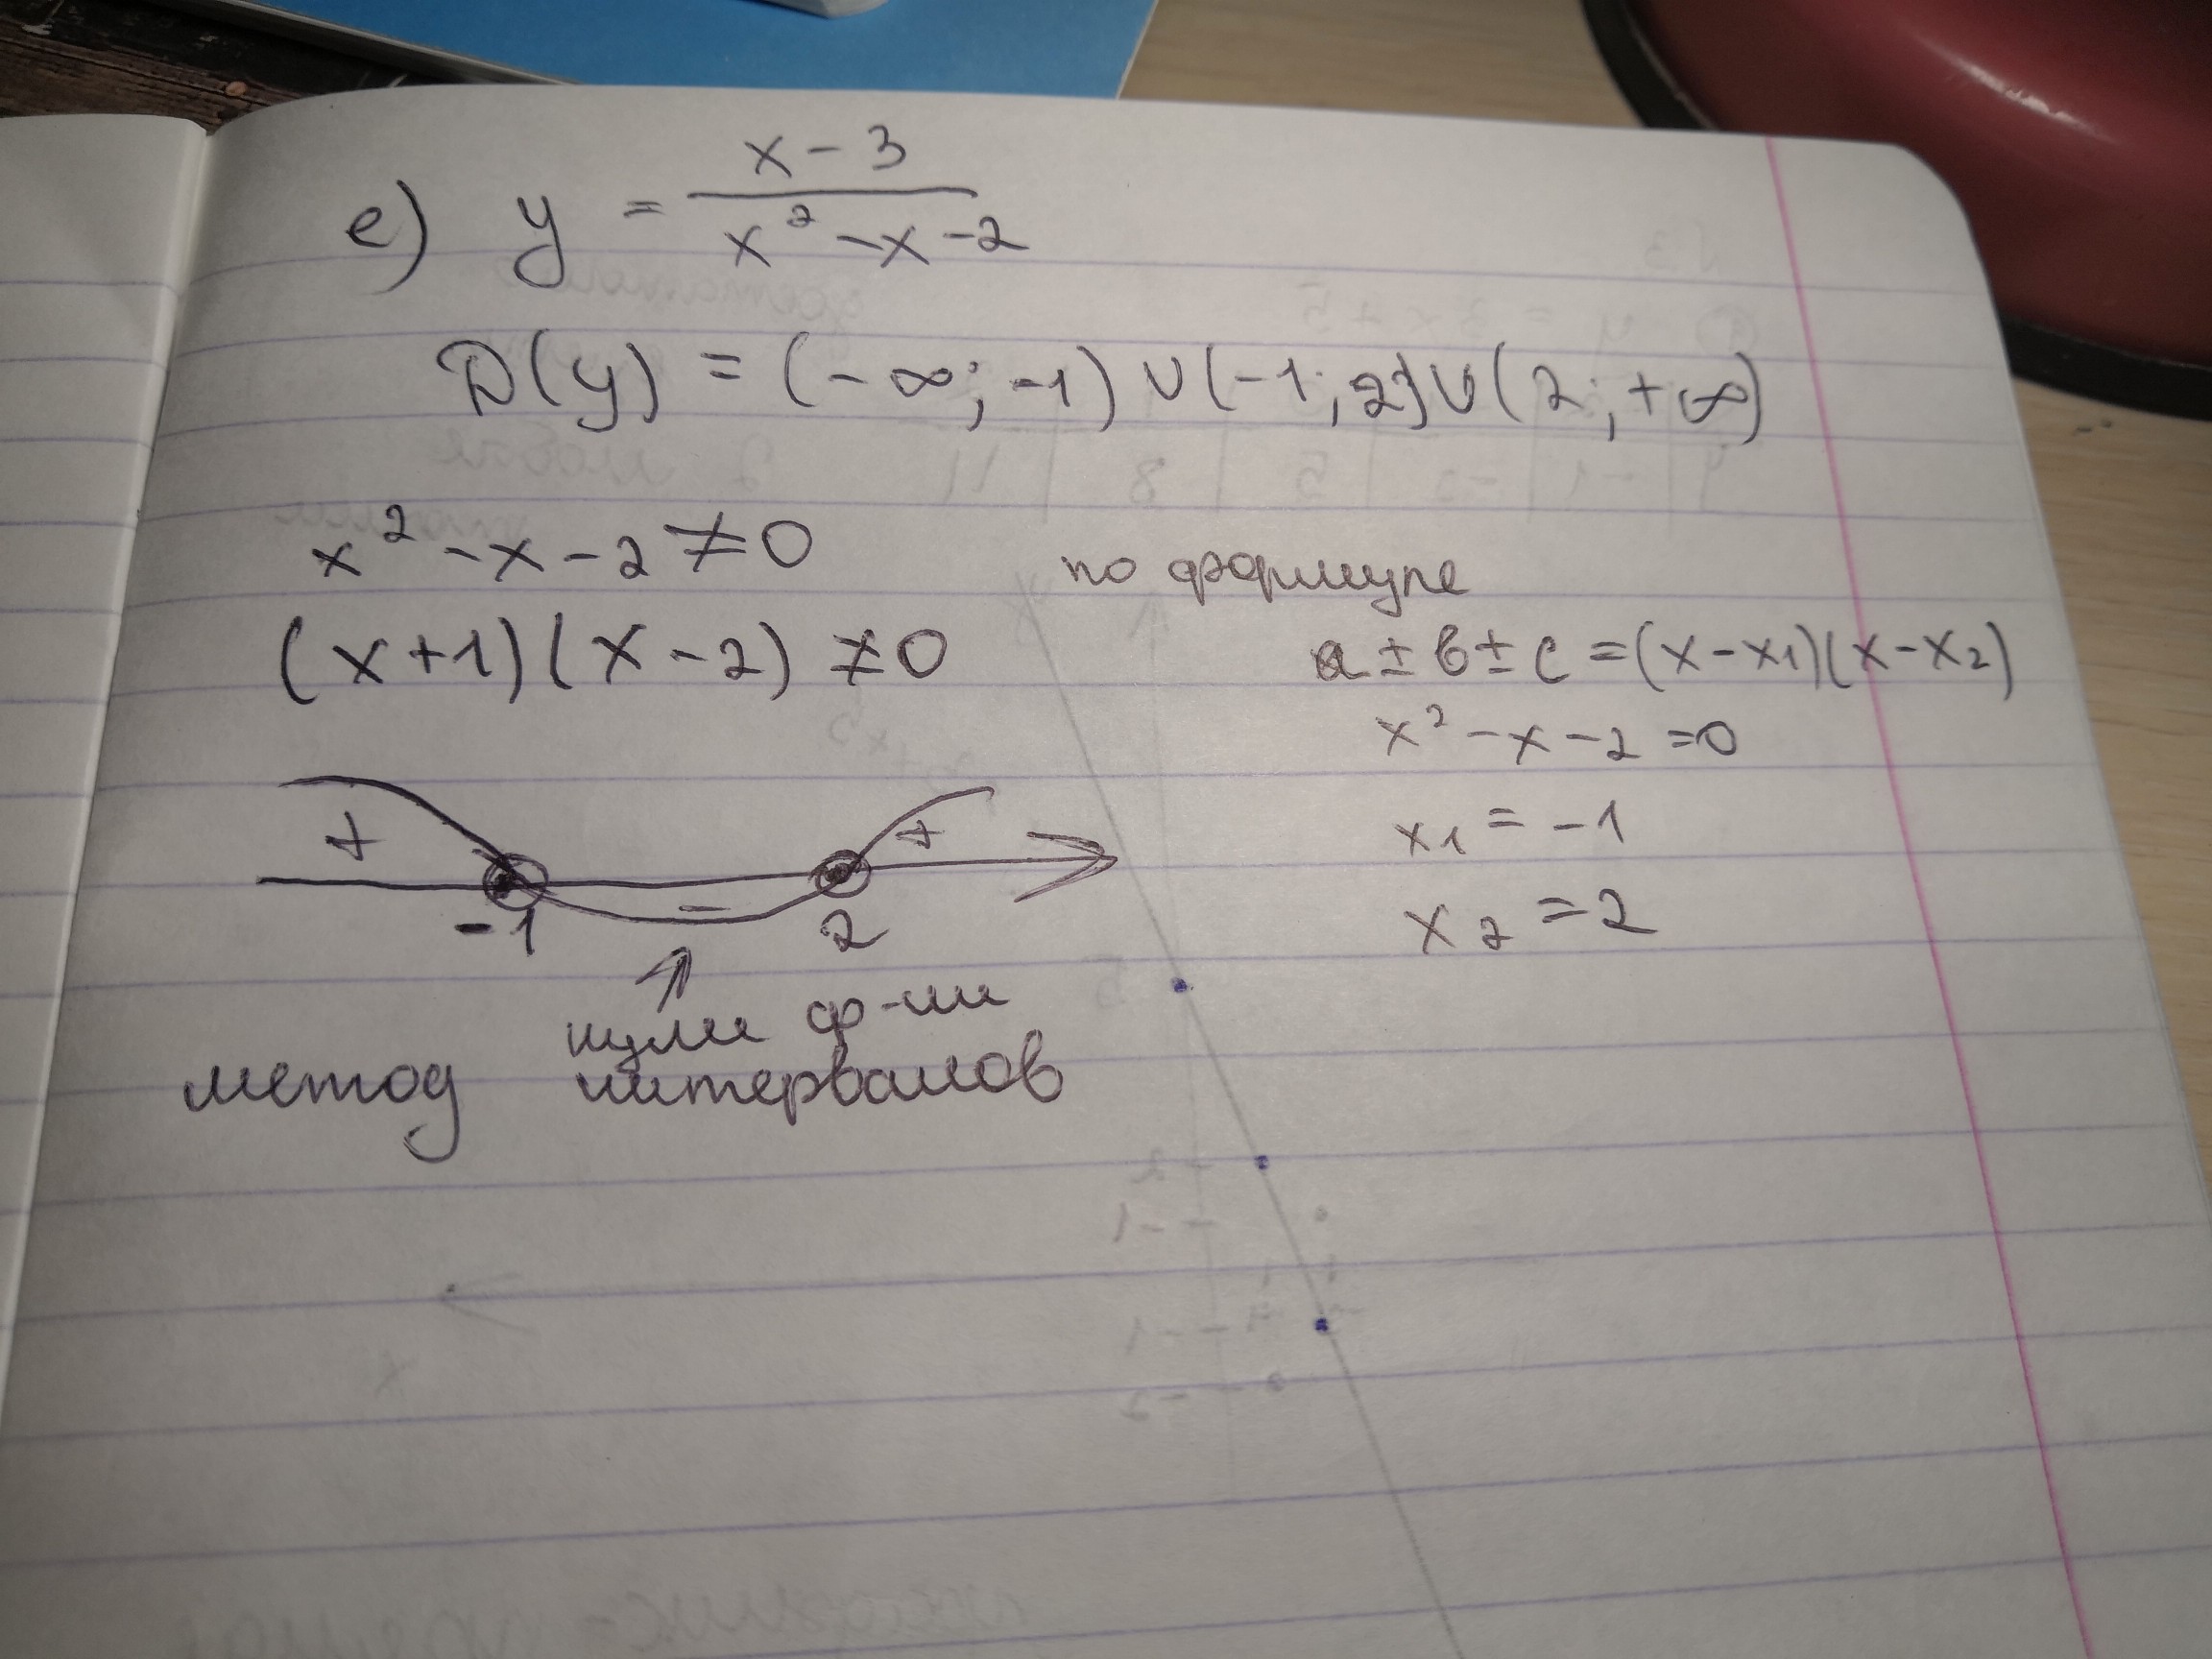 е) y = x - 3 / x² - x - 2
D(y) = (-∞; -1) ∪ (-1; 2) ∪ (2; +∞)
x² - x - 2 ≠ 0
по формуле
(x+1)(x-2) ≠ 0
a ± b ± c = (x-x1)(x-x2)
x² - x - 2 = 0
x1 = -1
x2 = 2
+ - +
-1 2
нули ф-ии
метод интервалов